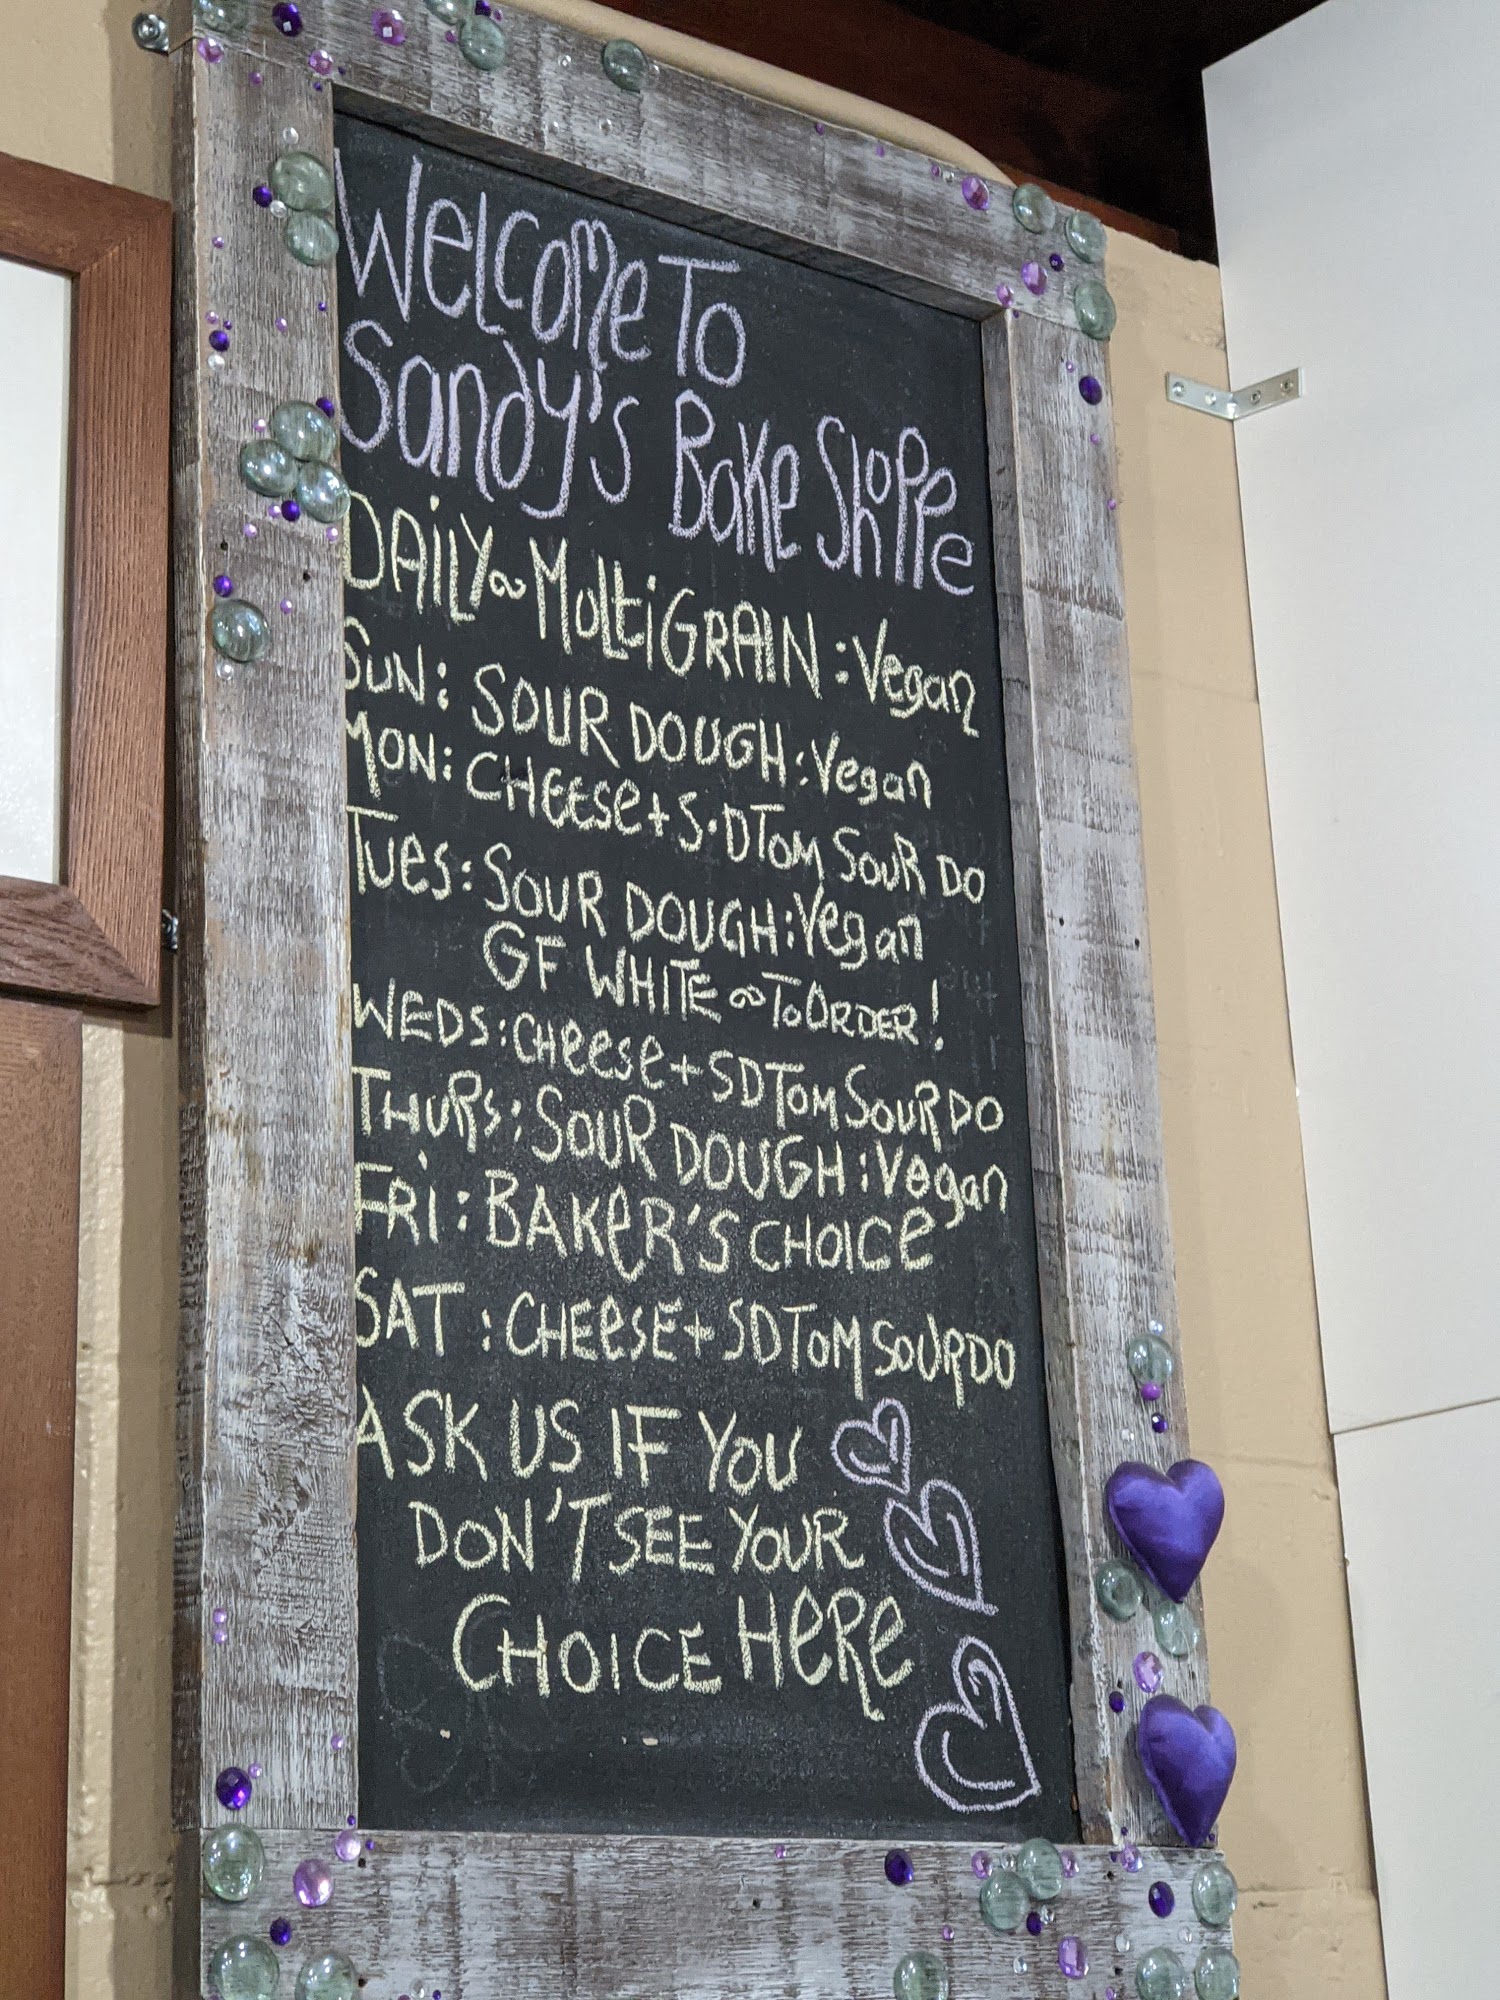 Welcome To
Sandy's Bake Shoppe
DAILY ~ MultiGRAIN : Vegan
SUN: SOUR DOUGH : Vegan
MON: CHEESE + S.DTOM SOUR DO
TUES: SOUR DOUGH : Vegan
GF WHITE ~ TO ORDER!
WEDS: CHEESE + SDTOM SOUR DO
THURS: SOUR DOUGH : Vegan
FRI: BAKER'S CHOICE
SAT: CHEESE + SDTOM SOURDO
ASK US IF YOU
DON'T SEE YOUR
CHOICE HERE